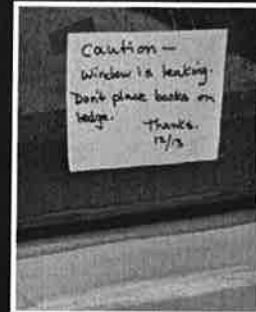 Caution —
Window is leaking.
Don't place books on
ledge.
Thanks.
12/13